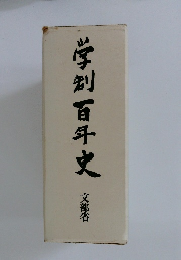 学制百年史
文部省